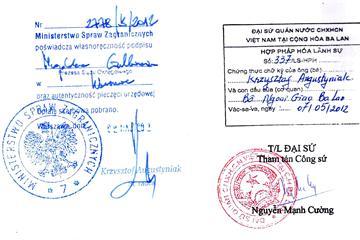 Nr 2778/S/2012
Ministerstwo Spraw Zagranicznych
poświadcza własnoręczność podpisu
Prezesa Sądu Okręgowego
w
oraz autentyczność pieczęci urzędowej
Opłatę skarbową pobrano.
Warszawa, dnia
MINISTERSTWO SPRAW ZAGRANICZNYCH
* 7 *
Krzysztof Augustyniak
ĐẠI SỨ QUÁN NƯỚC CHXHCN
VIỆT NAM TẠI CỘNG HÒA BA LAN
HỢP PHÁP HÓA LÃNH SỰ
Số: 337/LS-HPH
Chứng thực chữ ký của ông (bà):
Krzysztof Augustyniak
Và con dấu của (cơ quan)
Bộ Ngoại Giao Ba Lan
Vác-sa-va, ngày: 07/05/2012
T/L ĐẠI SỨ
Tham tán Công sứ
Nguyễn Mạnh Cường